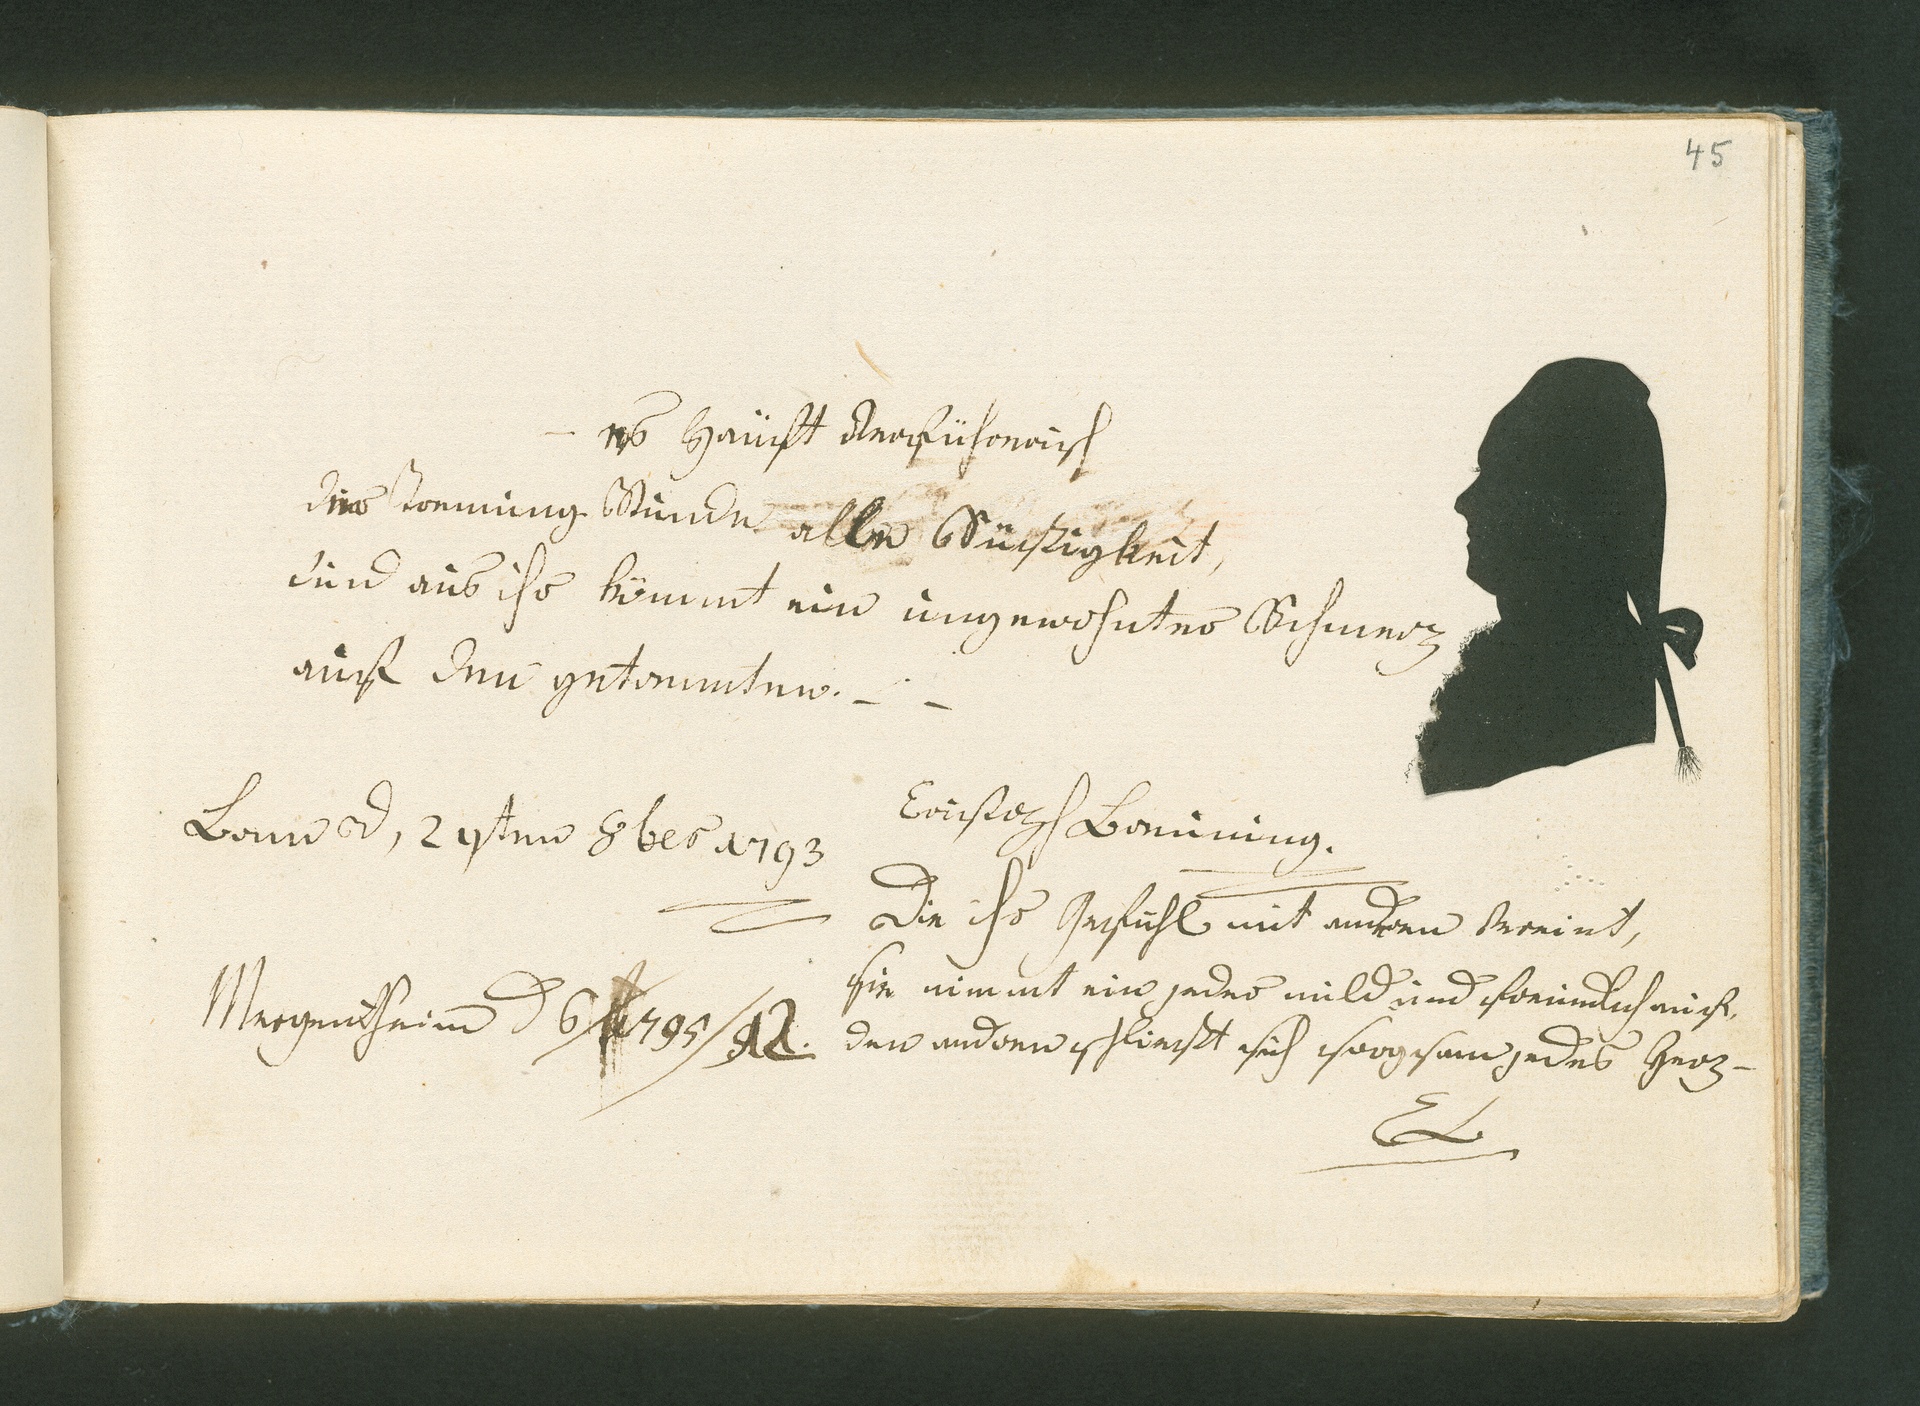 45
– es häuft Verführerisch
der Trennung Stunde alle Süssigkeit,
und aus ihr kömmt ein ungewohnter Schmerz
auf den getrennten. – –
Bonn d, 29ten 8ber 1793
Christoph Breuning.
Die ihr Gefühl mit andern Vereint,
Sie nimmt ein jeder mild und freundlich auf,
den andern schliesst sich sorgsam jedes Herz –
Mergentheim d 6 1795/